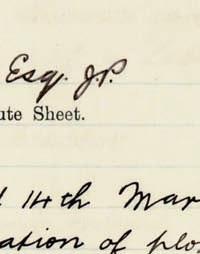 Esq. J.P.
ute Sheet.
14th Mar
ation of plo